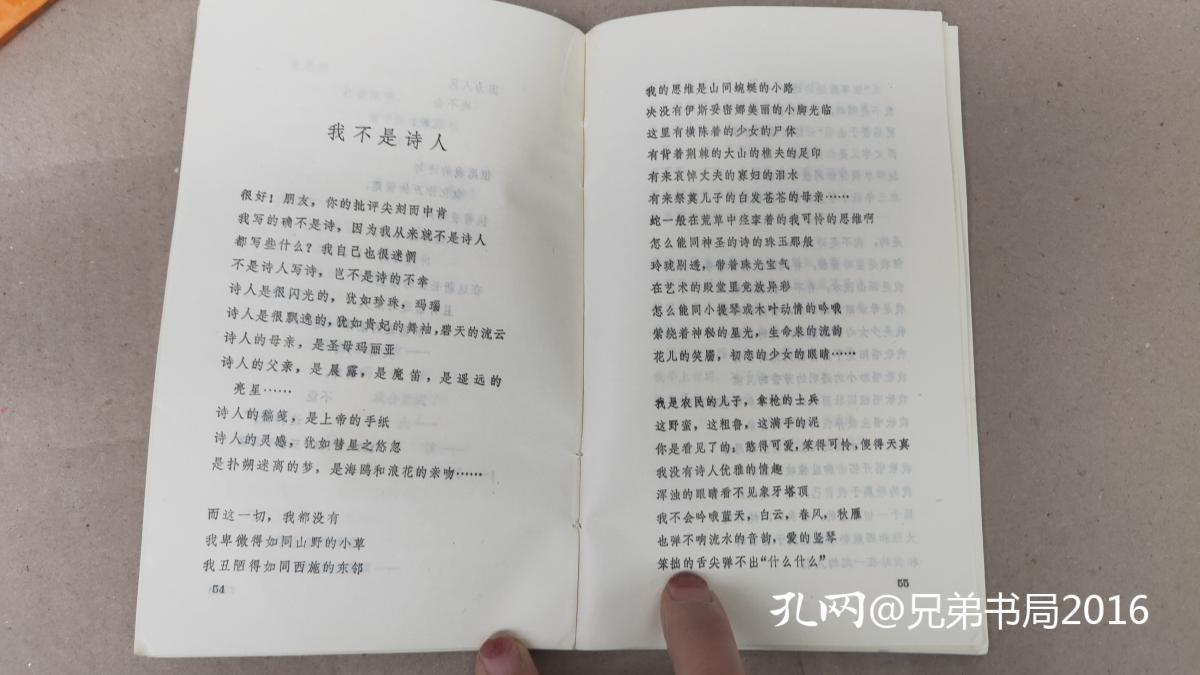 我不是诗人
很好！朋友，你的批评尖刻而中肯
我写的确不是诗，因为我从来就不是诗人
都写些什么？我自己也很迷惘
不是诗人写诗，岂不是诗的不幸
诗人是很闪光的，犹如珍珠，玛瑙
诗人是很飘逸的，犹如贵妃的舞袖，碧天的流云
诗人的母亲，是圣母玛丽亚
诗人的父亲，是晨露，是魔笛，是遥远的
亮星……
诗人的稿笺，是上帝的手纸
诗人的灵感，犹如彗星之悠忽
是扑朔迷离的梦，是海鸥和浪花的亲吻……
而这一切，我都没有
我卑微得如同山野的小草
我丑陋得如同西施的东邻
54
我的思维是山间蜿蜒的小路
决没有伊斯妥密娜美丽的小脚光临
这里有横陈着的少女的尸体
有背着荆棘的大山的樵夫的足印
有来哀悼丈夫的寡妇的泪水
有来祭奠儿子的白发苍苍的母亲……
蛇一般在荒草中痉挛着的我可怜的思维啊
怎么能同神圣的诗的珠玉那般
玲珑剔透，带着珠光宝气
在艺术的殿堂里竞放异彩
怎么能同小提琴或木叶动情的吟哦
萦绕着神秘的星光，生命泉的流韵
花儿的笑靥，初恋的少女的眼睛……
我是农民的儿子，拿枪的士兵
这野蛮，这粗鲁，这满手的泥
你是看见了的；憨得可爱，笨得可怜，傻得天真
我没有诗人优雅的情趣
浑浊的眼睛看不见象牙塔顶
我不会吟哦蓝天，白云，春风，秋雁
也弹不响流水的音韵，爱的竖琴
笨拙的舌尖弹不出“什么什么”
55
孔网@兄弟书局2016